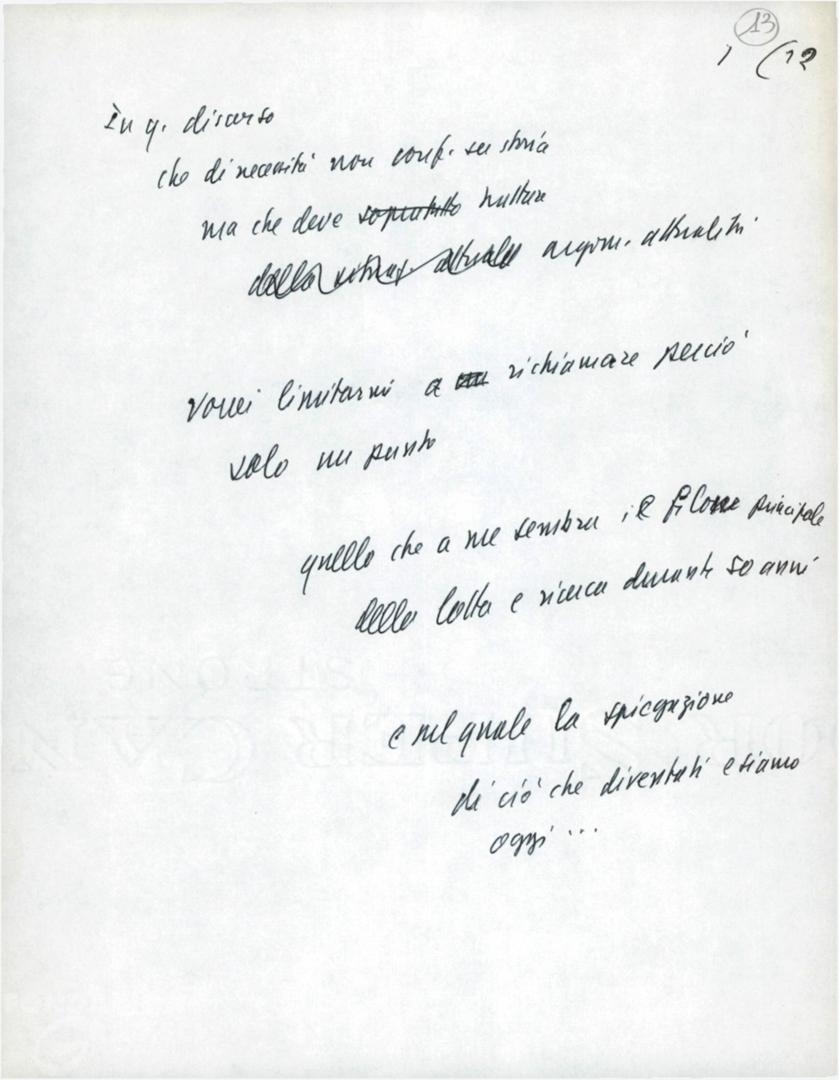 13
1 (12
In q. discorso
che di necessità non conf. su storia
ma che deve sopratutto trattare
della situaz. attuale argom. attualità
vorrei limitarmi a richiamare perciò
solo un punto
quello che a me sembra il filone principale
della lotta e ricerca durante 50 anni
e nel quale la spiegazione
di ciò che diventati e siamo
oggi ...